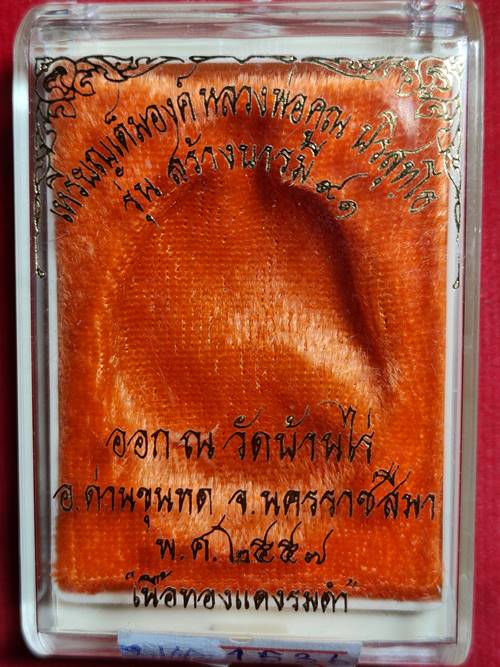 เหรียญเต็มองค์ หลวงพ่อคูณ ปริสุทฺโธ
รุ่น สร้างบารมี ๙๑
ออก ณ วัดบ้านไร่
อ.ด่านขุนทด จ.นครราชสีมา
พ.ศ.๒๕๕๗
"เนื้อทองแดงรมดำ"